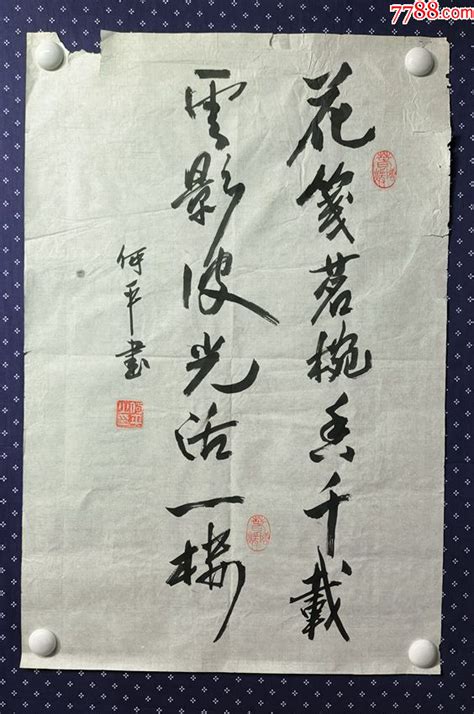 7788.com
花箋茗椀香千載
雲影波光活一樓
何平書